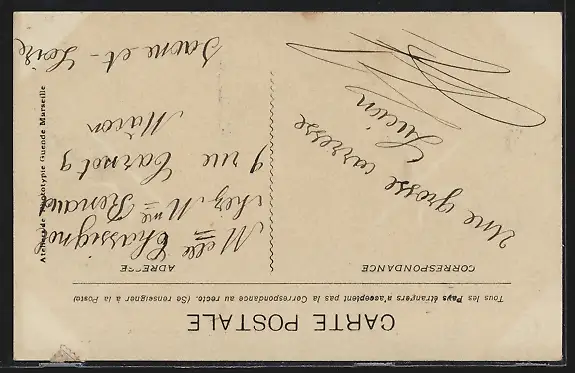 CARTE POSTALE
Tous les Pays étrangers n'acceptent pas la Correspondance au recto. (Se renseigner à la Poste)
CORRESPONDANCE
Une grosse carresse
Lucien
ADRESSE
Melle Chassigne
chez Mme Renaud
9 rue Carnot 9
Mâcon
Saone-et-Loire
Ateliers de Phototypie Guende Marseille